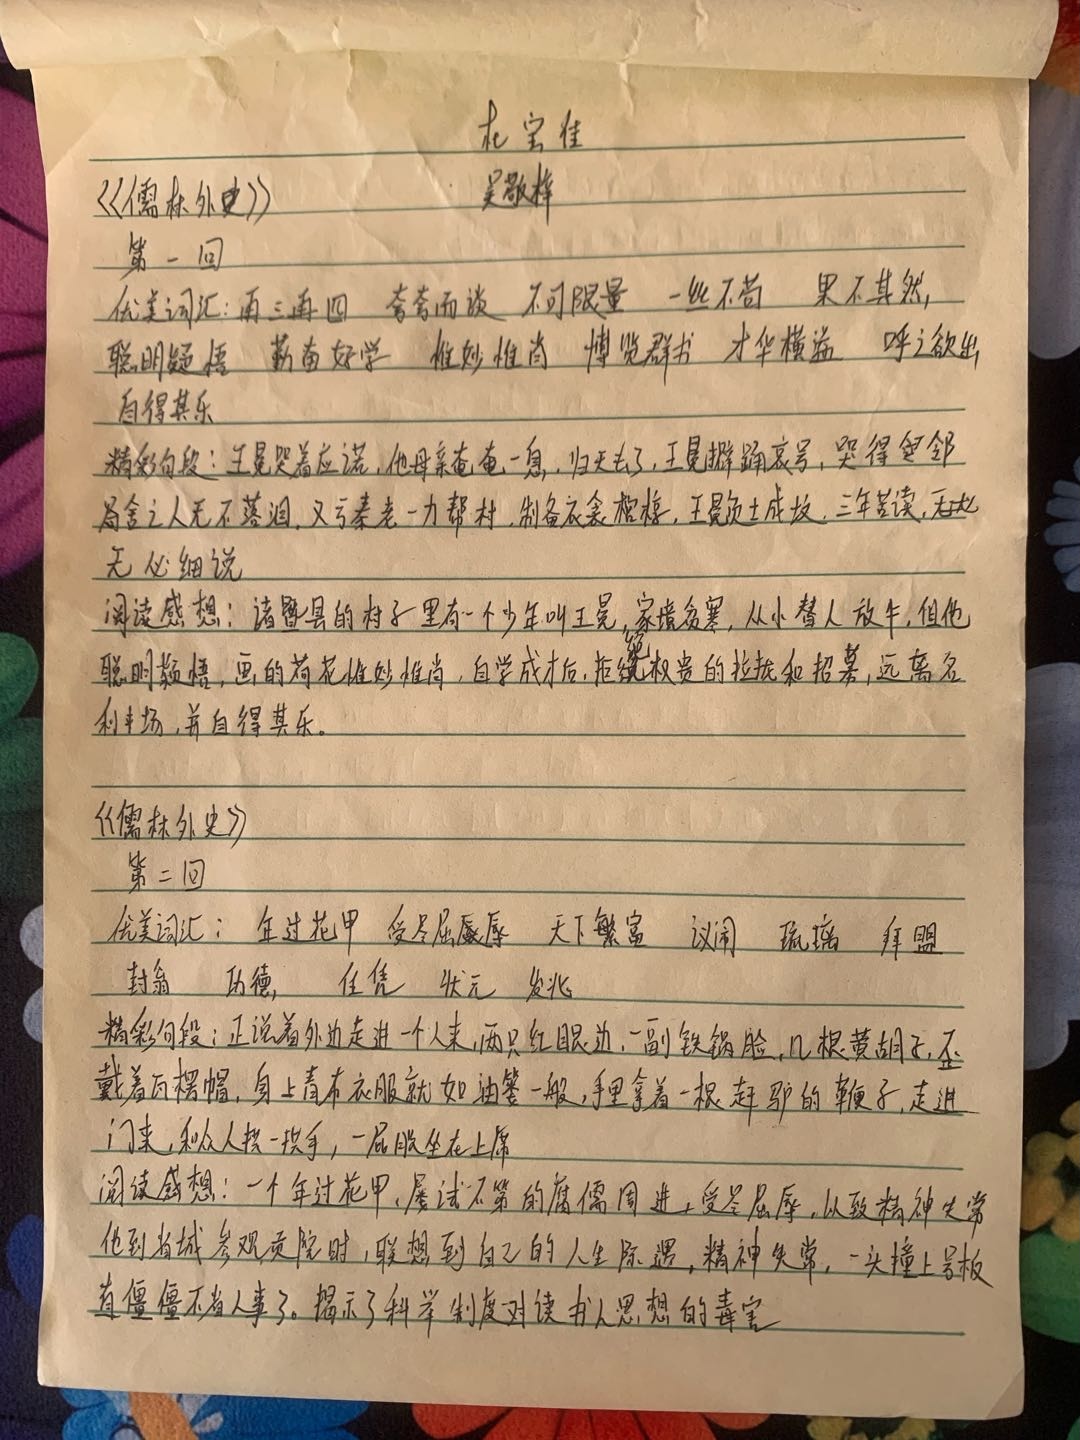 宝佳
《儒林外史》 吴敬梓
第一回
优美词汇：再三再四 夸夸而谈 不可限量 一丝不苟 果不其然,
聪明颖悟 勤奋好学 惟妙惟肖 博览群书 才华横溢 呼之欲出
自得其乐
精彩句段：王冕哭着应诺，他母亲奄奄一息，归天去了，王冕擗踊哀号，哭得邻
居舍之人无不落泪，又亏秦老一力帮衬，制备衣衾棺椁，王冕负土成坟，三年苦读，
无必细说
阅读感想：诸暨县的村子里有一个少年叫王冕，家境贫寒，从小替人放牛，但他
聪明颖悟，画的荷花惟妙惟肖，自学成才后，拒绝权贵的拉拢和招募，远离名
利丰场，并自得其乐。
《儒林外史》
第二回
优美词汇：年过花甲 受尽屈辱辱 天下繁富 议闹 琉璃 拜盟
封翁 功德, 任凭 状元 发兆
精彩句段：正说着外边走进一个人来，两只红眼边，一副铁锅脸，几根黄胡子，歪
戴着瓦楞帽，身上青布衣服就如油篓一般，手里拿着一根赶驴的鞭子，走进
门来，和众人拱一拱手，一屁股坐在上席
阅读感想：一个年过花甲，屡试不第的腐儒周进，受尽屈辱，以致精神失常
他到省城参观贡院时，联想到自己的人生际遇，精神失常，一头撞上号板
直僵僵不省人事了。揭示了科举制度对读书人思想的毒害